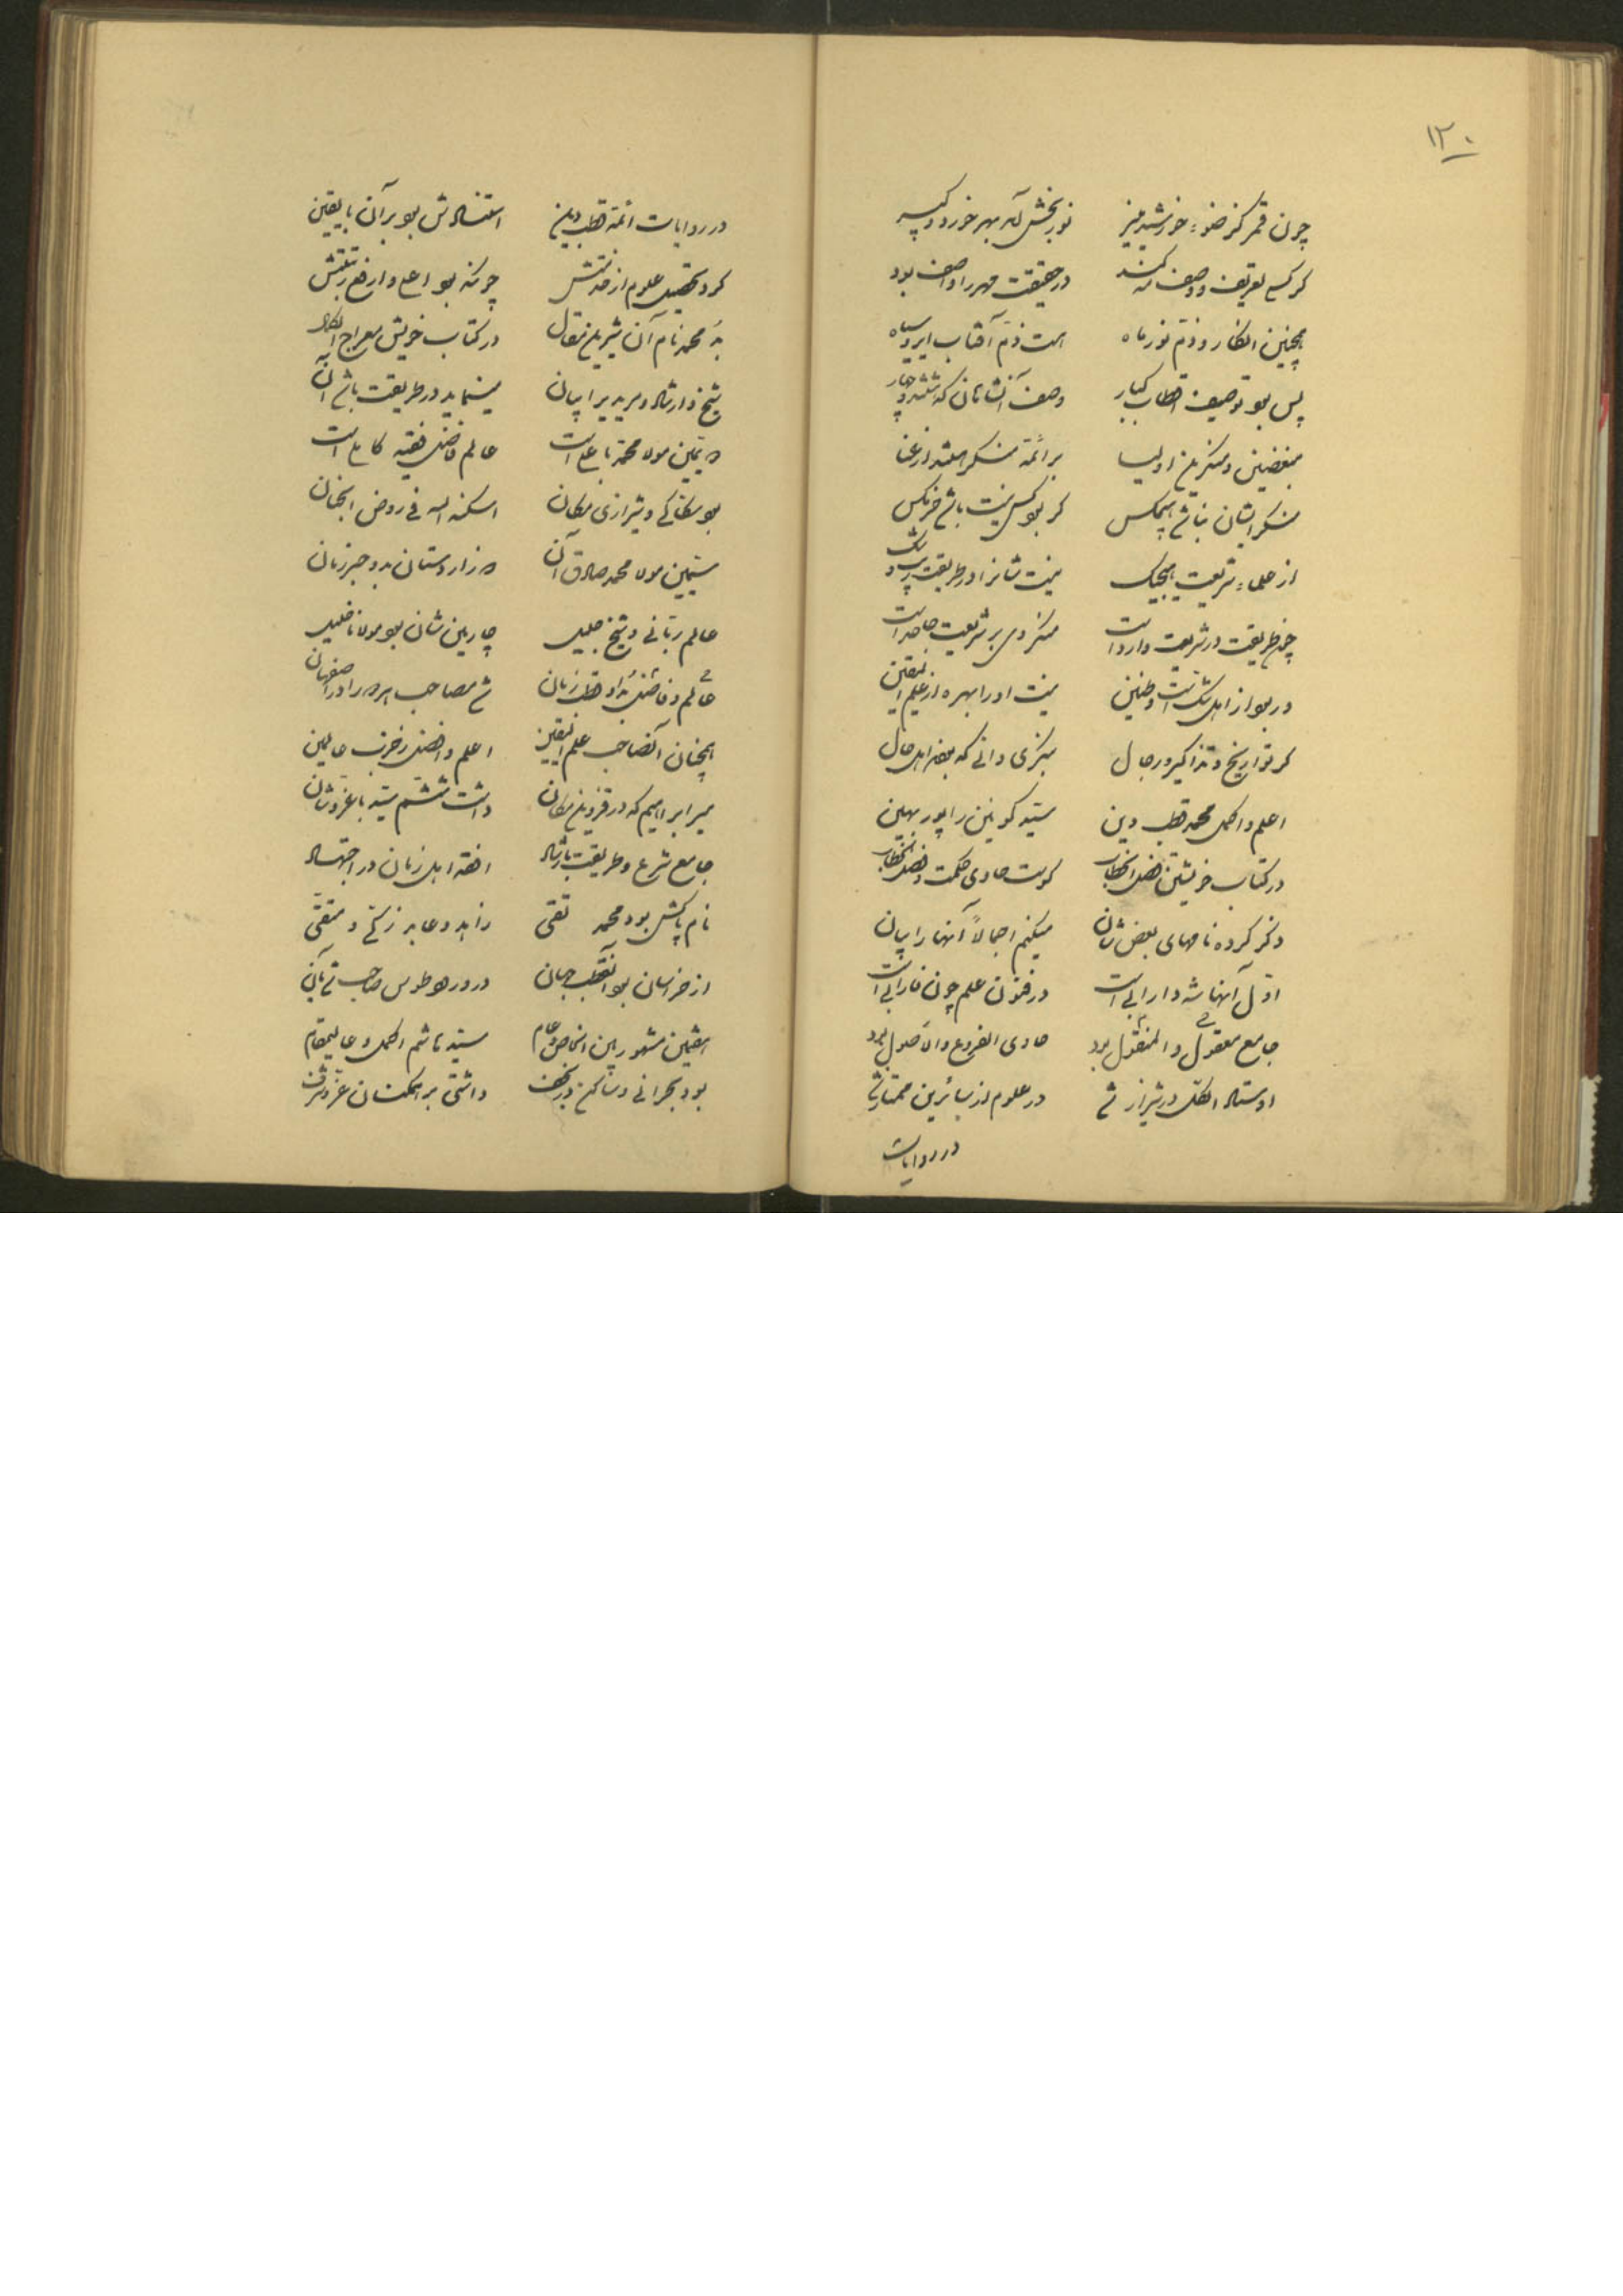 ۱۳۰
چون قمر کز ضوء خورشید منیر نوربخش آمد بهر خورد و کبیر
گر کسی تعریف و وصف مه کند در حقیقت مهر را واصف بود
همچنین انکار و ذم نور ماه هست ذم آفتاب ای روسیاه
پس بود توصیف اقطاب کبار وصف آنشاهان که هشتند و چهار
مبغضین و منکرین اولیا بر ائمه منکر هستند از عنا
منکر ایشان نباشد هیچکس گر بود کس نیست باشد خرمگس
از علماء شریعت هیچیک نیست شانرا در طریقت ریب و شک
چون طریقت در شریعت وارد است منکر وی بر شریعت جاحد است
ور بود از اهل شک است و ظنین نیست او را بهره از علم الیقین
گر تواریخ و تذاکیر و رجال بنگری دانی که بعض اهل حال
اعلم و اکمل محمد قطب دین سید کونین را پور بهین
در کتاب خویشتن فصل الخطاب کوست حاوی حکمت و فصل الخطاب
ذکر کرده نامهای بعض شان میکنم اجمالاً آنها را بیان
اول آنها شه دارابی است در فنون علم چون فارابی است
جامع معقول و المنقول بود حاوی الفروع والاصول بود
اوستاد الکل در شیراز شد در علوم از سائرین ممتاز شد
در روایات
در روایات ائمه قطب دین استنادش بود بر آن با یقین
کرد تحصیل علوم از خدمتش چونکه بود اعلی و ارفع رتبتش
بد محمد نام آن شیرین مقال در کتاب خویش معراج الکمال
شیخ ارشاد و مرید پیر ایمان مینماید در طریقت باشد آن
دویمین مولا محمد با علی است عالم فاضل فقیه کامل است
بود سکاکی و شیرازی مکان اسکنه الله فی روض الجنان
سیمین مولا محمد صادق آن ز اردستان بد و حبر زمان
عالم ربانی و شیخ جلیل چارمین شان بود مولانا خلیل
عالم و فاضل بد او قطب زمان شد مصاحب مر ورا در اصفهان
همچنان آنصاحب علم الیقین اعلم و افضل ز عرب عالمین
میر ابراهیم که در قزوین مکان داشت ششم سید با عز و شان
جامع شرع و طریقت با رشاد افقه اهل زمان در اجتهاد
نام پاکش بود محمد تقی زاهد و عابد زکی و متقی
از خراسان بود آنقطب جهان در ورود طوس صاحب شد بآن
هفتمین مشهور بین الخاص و عام سید هاشم اکمل و عالیمقام
بود بحرانی و ساکن در نجف داشتی بر همکنان عز و شرف